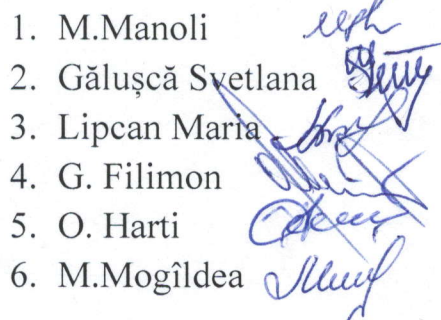 1. M.Manoli
2. Gălușcă Svetlana
3. Lipcan Maria
4. G. Filimon
5. O. Harti
6. M.Mogîldea